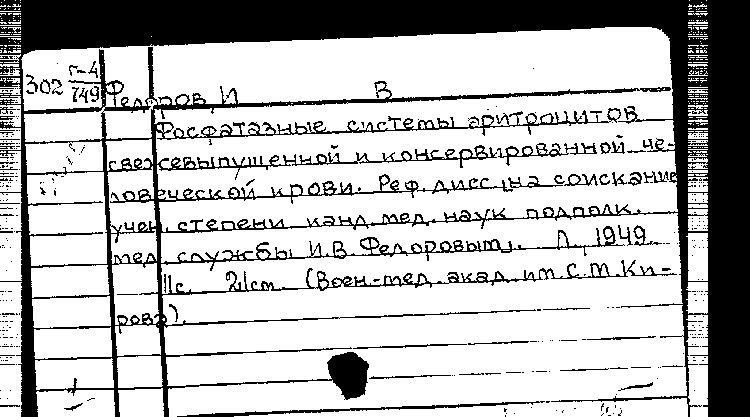 302 Г-4/749 Федоров, И В
Фосфатазные системы эритроцитов
свежевыпущенной и консервированной че-
ловеческой крови. Реф. дисс на соискание
учен. степени канд. мед. наук подполк.
мед. службы И.В. Федоровым. Л., 1949.
11с. 21см. (Воен-мед. акад. им. С.М. Ки-
рова).